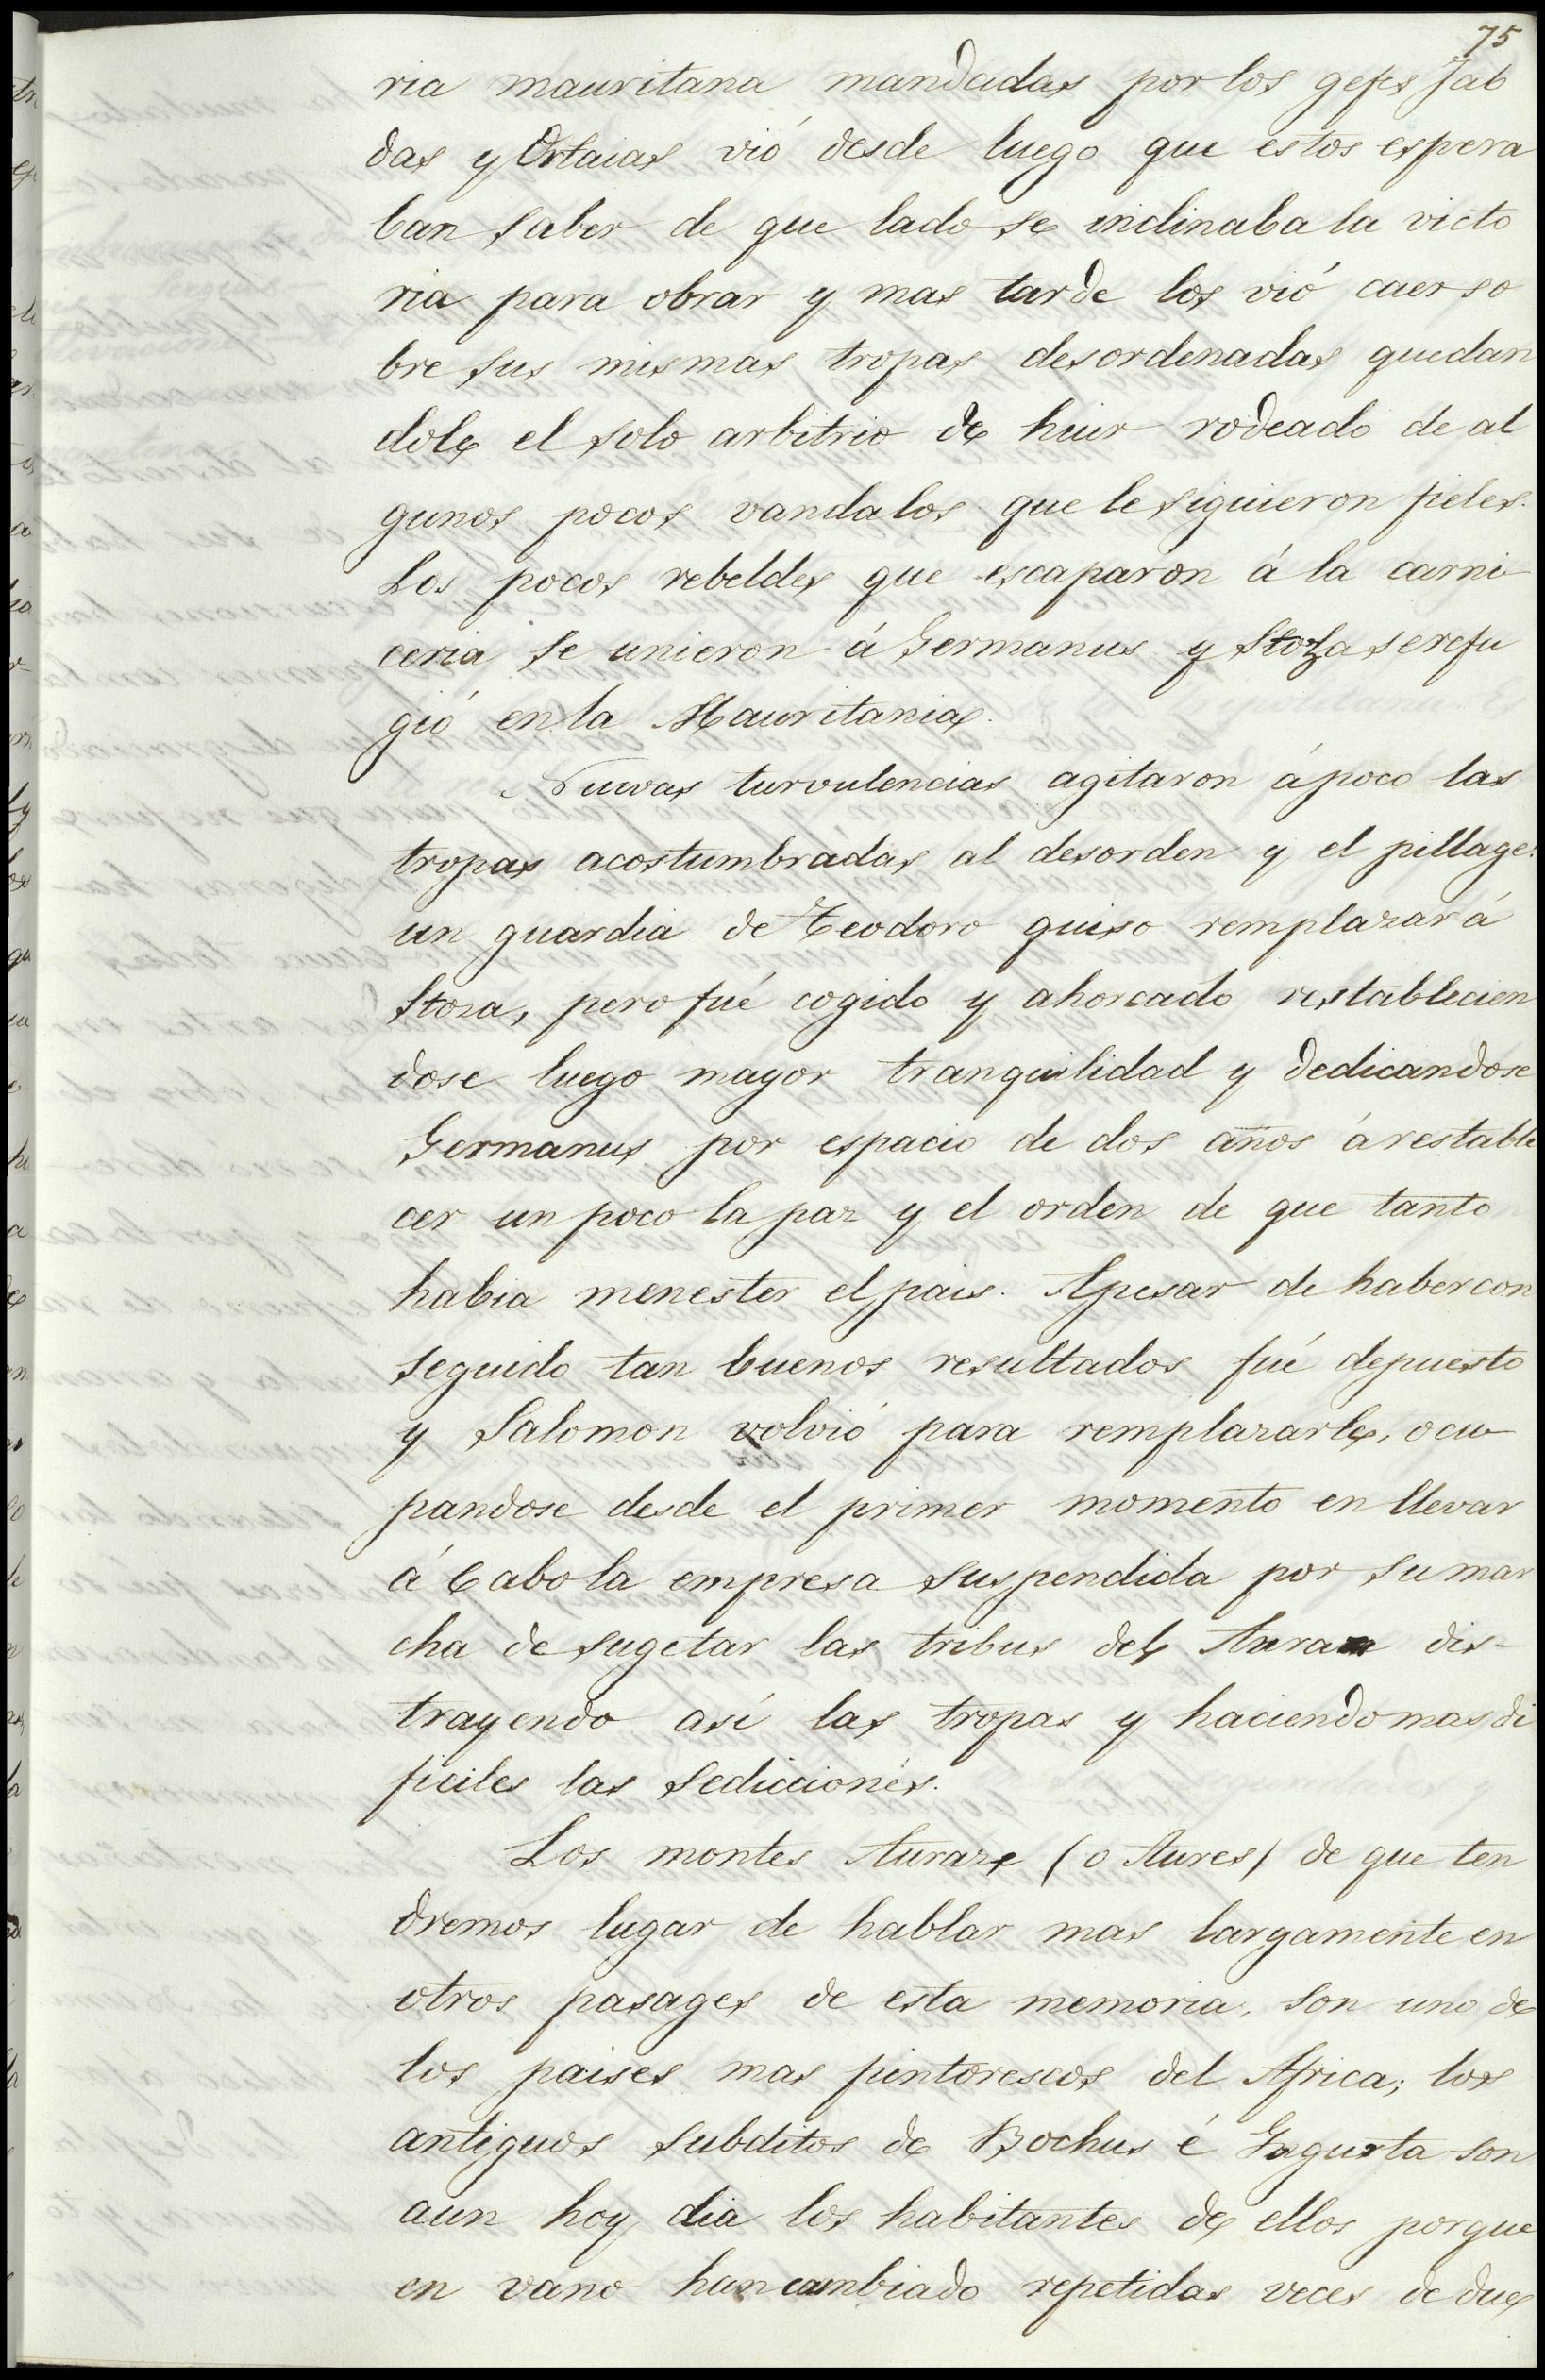 75
ria mauritana mandadas por los gefes Jab
das y Ortaias vió desde luego que estos espera
ban saber de que lado se inclinaba la victo
ria para obrar y mas tarde los vió caer so
bre sus mismas tropas desordenadas quedan
dole el solo arbitrio de huir rodeado de al
gunos pocos vandalos que le siguieron fieles.
Los pocos rebeldes que escaparon á la carni
ceria se unieron á Germanus y Stoza se refu
gió en la Mauritania.
Nuevas turvulencias agitaron á poco las
tropas acostumbradas al desorden y el pillage:
un guardia de Teodoro quiso remplazar á
Stoza, pero fué cogido y ahorcado restablecien
dose luego mayor tranquilidad y dedicandose
Germanus por espacio de dos años á restable
cer un poco la paz y el orden de que tanto
habia menester el pais. Apesar de haber con
seguido tan buenos resultados fué depuesto
y Salomon volvió para remplazarle, ocu
pandose desde el primer momento en llevar
á cabo la empresa suspendida por su mar
cha de sugetar las tribus del dis-
trayendo así las tropas y haciendo mas di
ficiles las sedicciones.
Los montes Auraze (o Aures) de que ten
dremos lugar de hablar mas largamente en
otros pasages de esta memoria, son uno de
los paises mas pintorescos del Africa; los
antiguos subditos de Bochus é Yugurta son
aun hoy dia los habitantes de ellos porque
en vano han cambiado repetidas veces de due